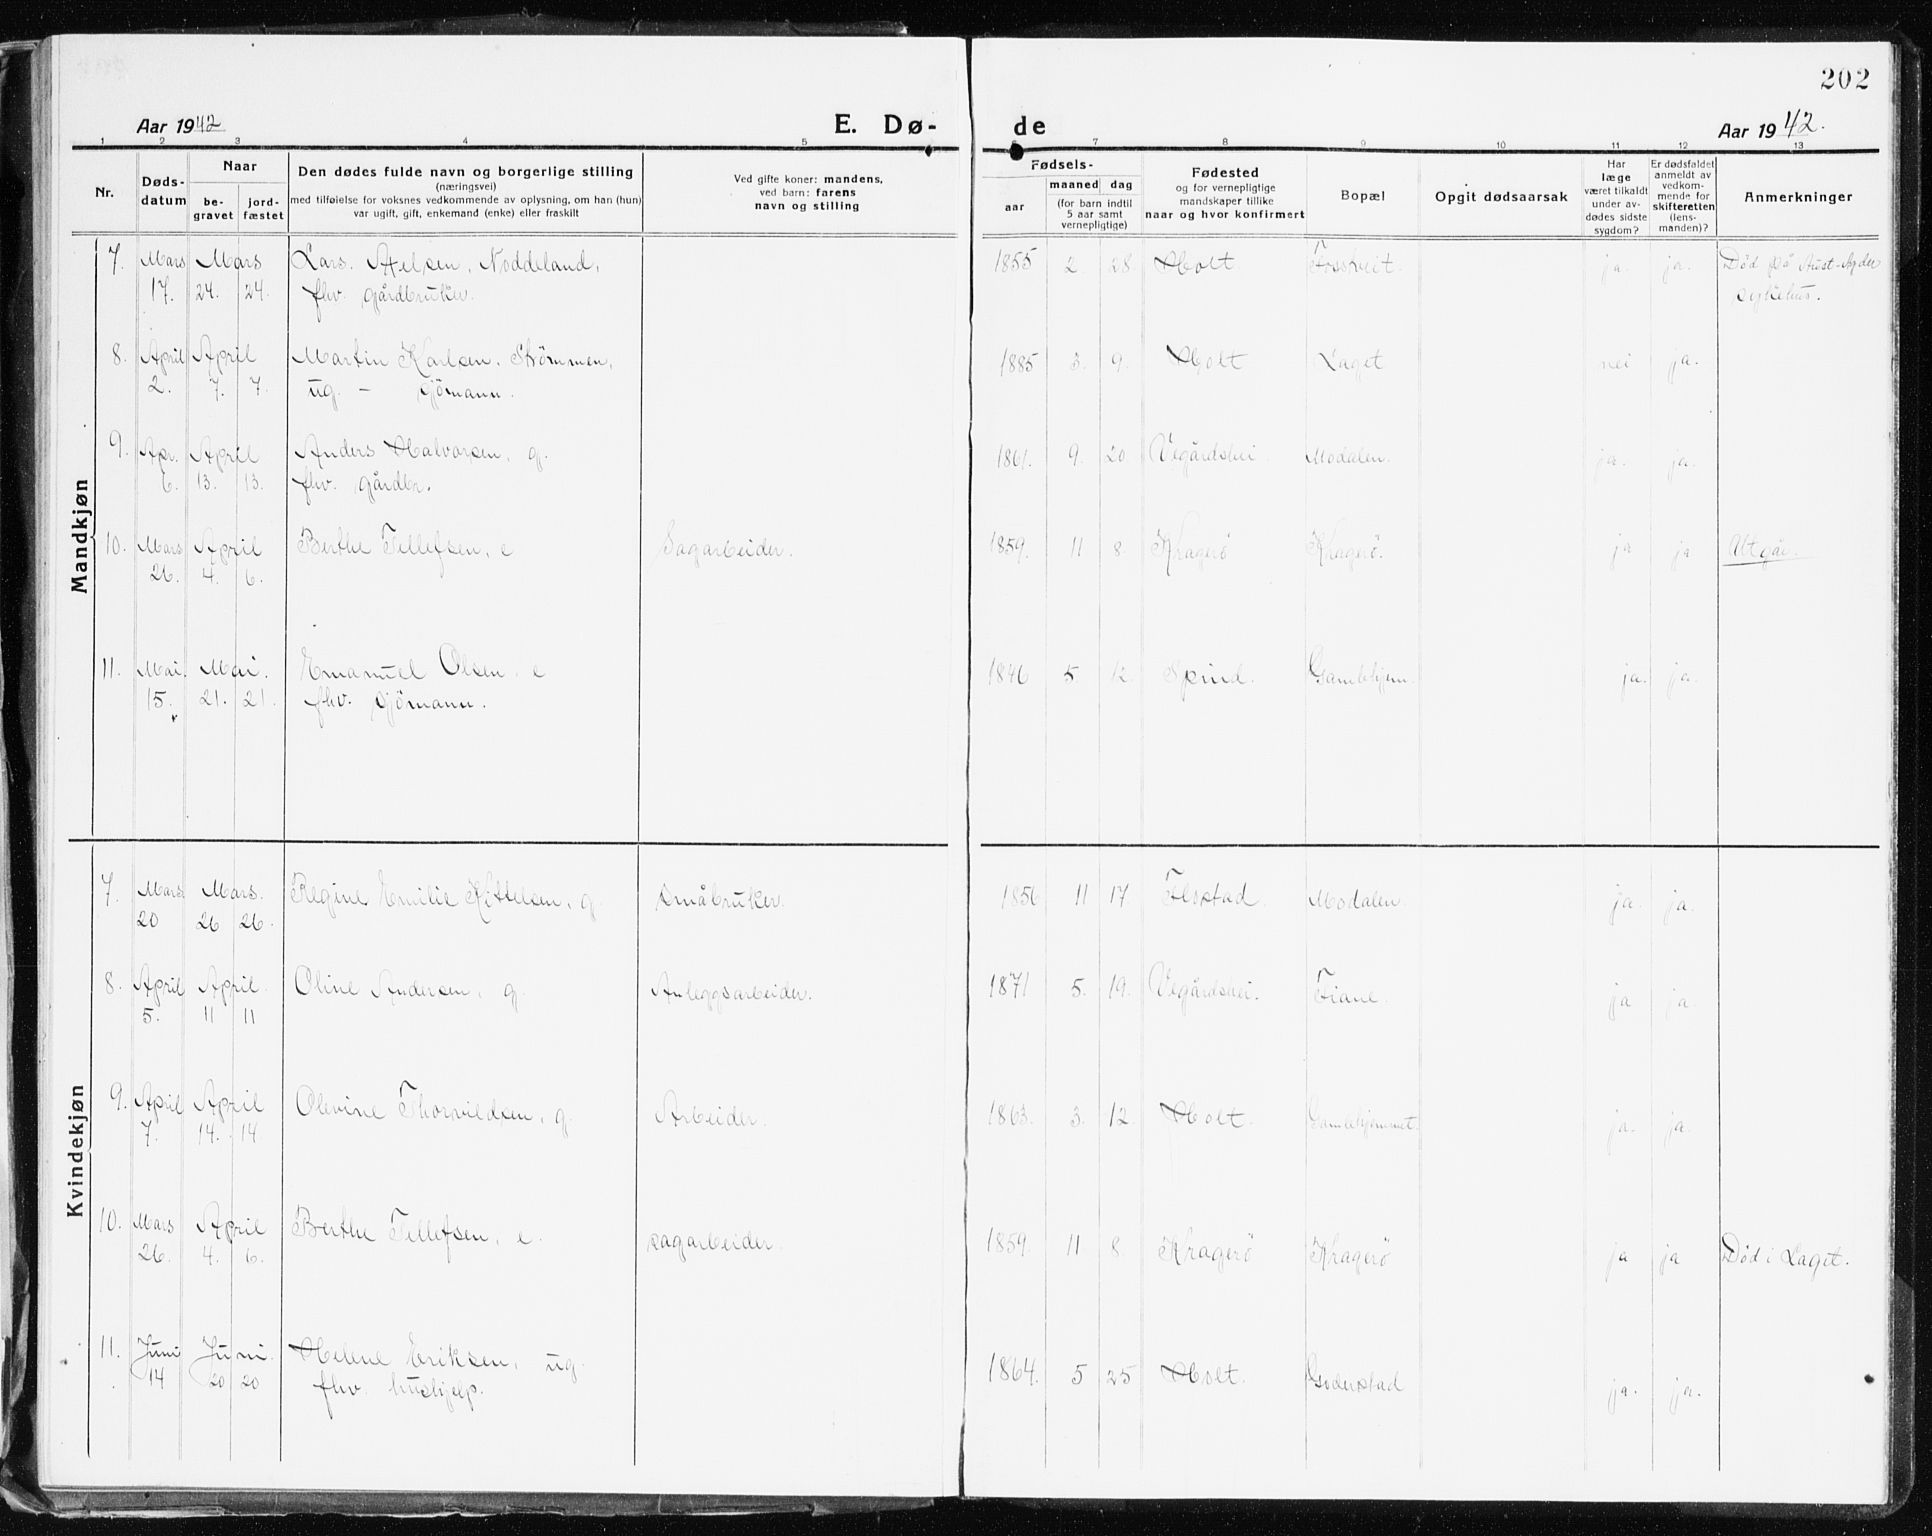 202
Aar 1942
E. Dø-
de
Aar 1942.
1 2 3 4 5
7 8 9 10 11 12 13
Nr.
Døds-
datum
Naar
be-
gravet
jord-
fæstet
Den dødes fulde navn og borgerlige stilling
(næringsvei)
med tilføielse for voksnes vedkommende av oplysning, om han (hun)
var ugift, gift, enkemand (enke) eller fraskilt
Ved gifte koner: mandens,
ved barn: farens
navn og stilling
Fødsels-
aar
maaned dag
(for barn indtil
5 aar samt
vernepligtige)
Fødested
og for vernepligtige
mandskaper tillike
naar og hvor konfirmert
Bopæl
Opgit dødsaarsak
Har
læge
været tilkaldt
under av-
dødes sidste
sygdom?
Er dødsfaldet
anmeldt av
vedkom-
mende for
skifteretten
(lens-
manden)?
Anmerkninger
Mandkjøn
7. Mars Mars Lars Noddeland, 1855 2. 28 Holt ja. ja. Død på Aust-Agder
17. 24. 24. fhv. gårdbruker. sykehus.
8. April April Martin Karlsen, Strømmen, 1885 3. 9. Holt Laget nei ja.
2. 7. 7. ug. - sjömann.
9. Apr. April Anders Halvorsen, g. 1861. 9. 20. Vegårdshei. Modalen. ja. ja.
6. 13. 13. fhv. gårdbr.
10. Mars April Berthe Tellefsen, e Sagarbeider. 1859. 11 8. Kragerö Kragerö. ja ja Utgår.
26. 4. 6.
11. Mai. Mai. Emanuel Olsen, e 1846 5. 12. Spind. Gamlehjem. ja. ja.
15. 21. 21. fhv. sjömann.
Kvindekjøn
7. Mars. Mars. Regine Emilie Kittelsen, g. småbruker. 1856 11 17 Flostad. Modalen. ja. ja.
20 26 26.
8. April April. Oline Andersen, g. Anleggsarbeider. 1871 5. 19. Vegårdshei. Fiane. ja ja.
5. 11 11
9. April April Olevine Thorvildsen, g. Arbeider. 1863. 3. 12. Holt. Gamlehjemmet. ja. ja.
7. 14. 14
10. Mars April Berthe Tellefsen, e. sagarbeider. 1859. 11. 8. Kragerö Kragerö ja ja Död i Laget.
26. 4. 6.
11. Juni Juni. Helene Eriksen, ug. 1864. 5 25 Holt. Goderstad ja. ja.
14 20 20 fhv. hushjelp.